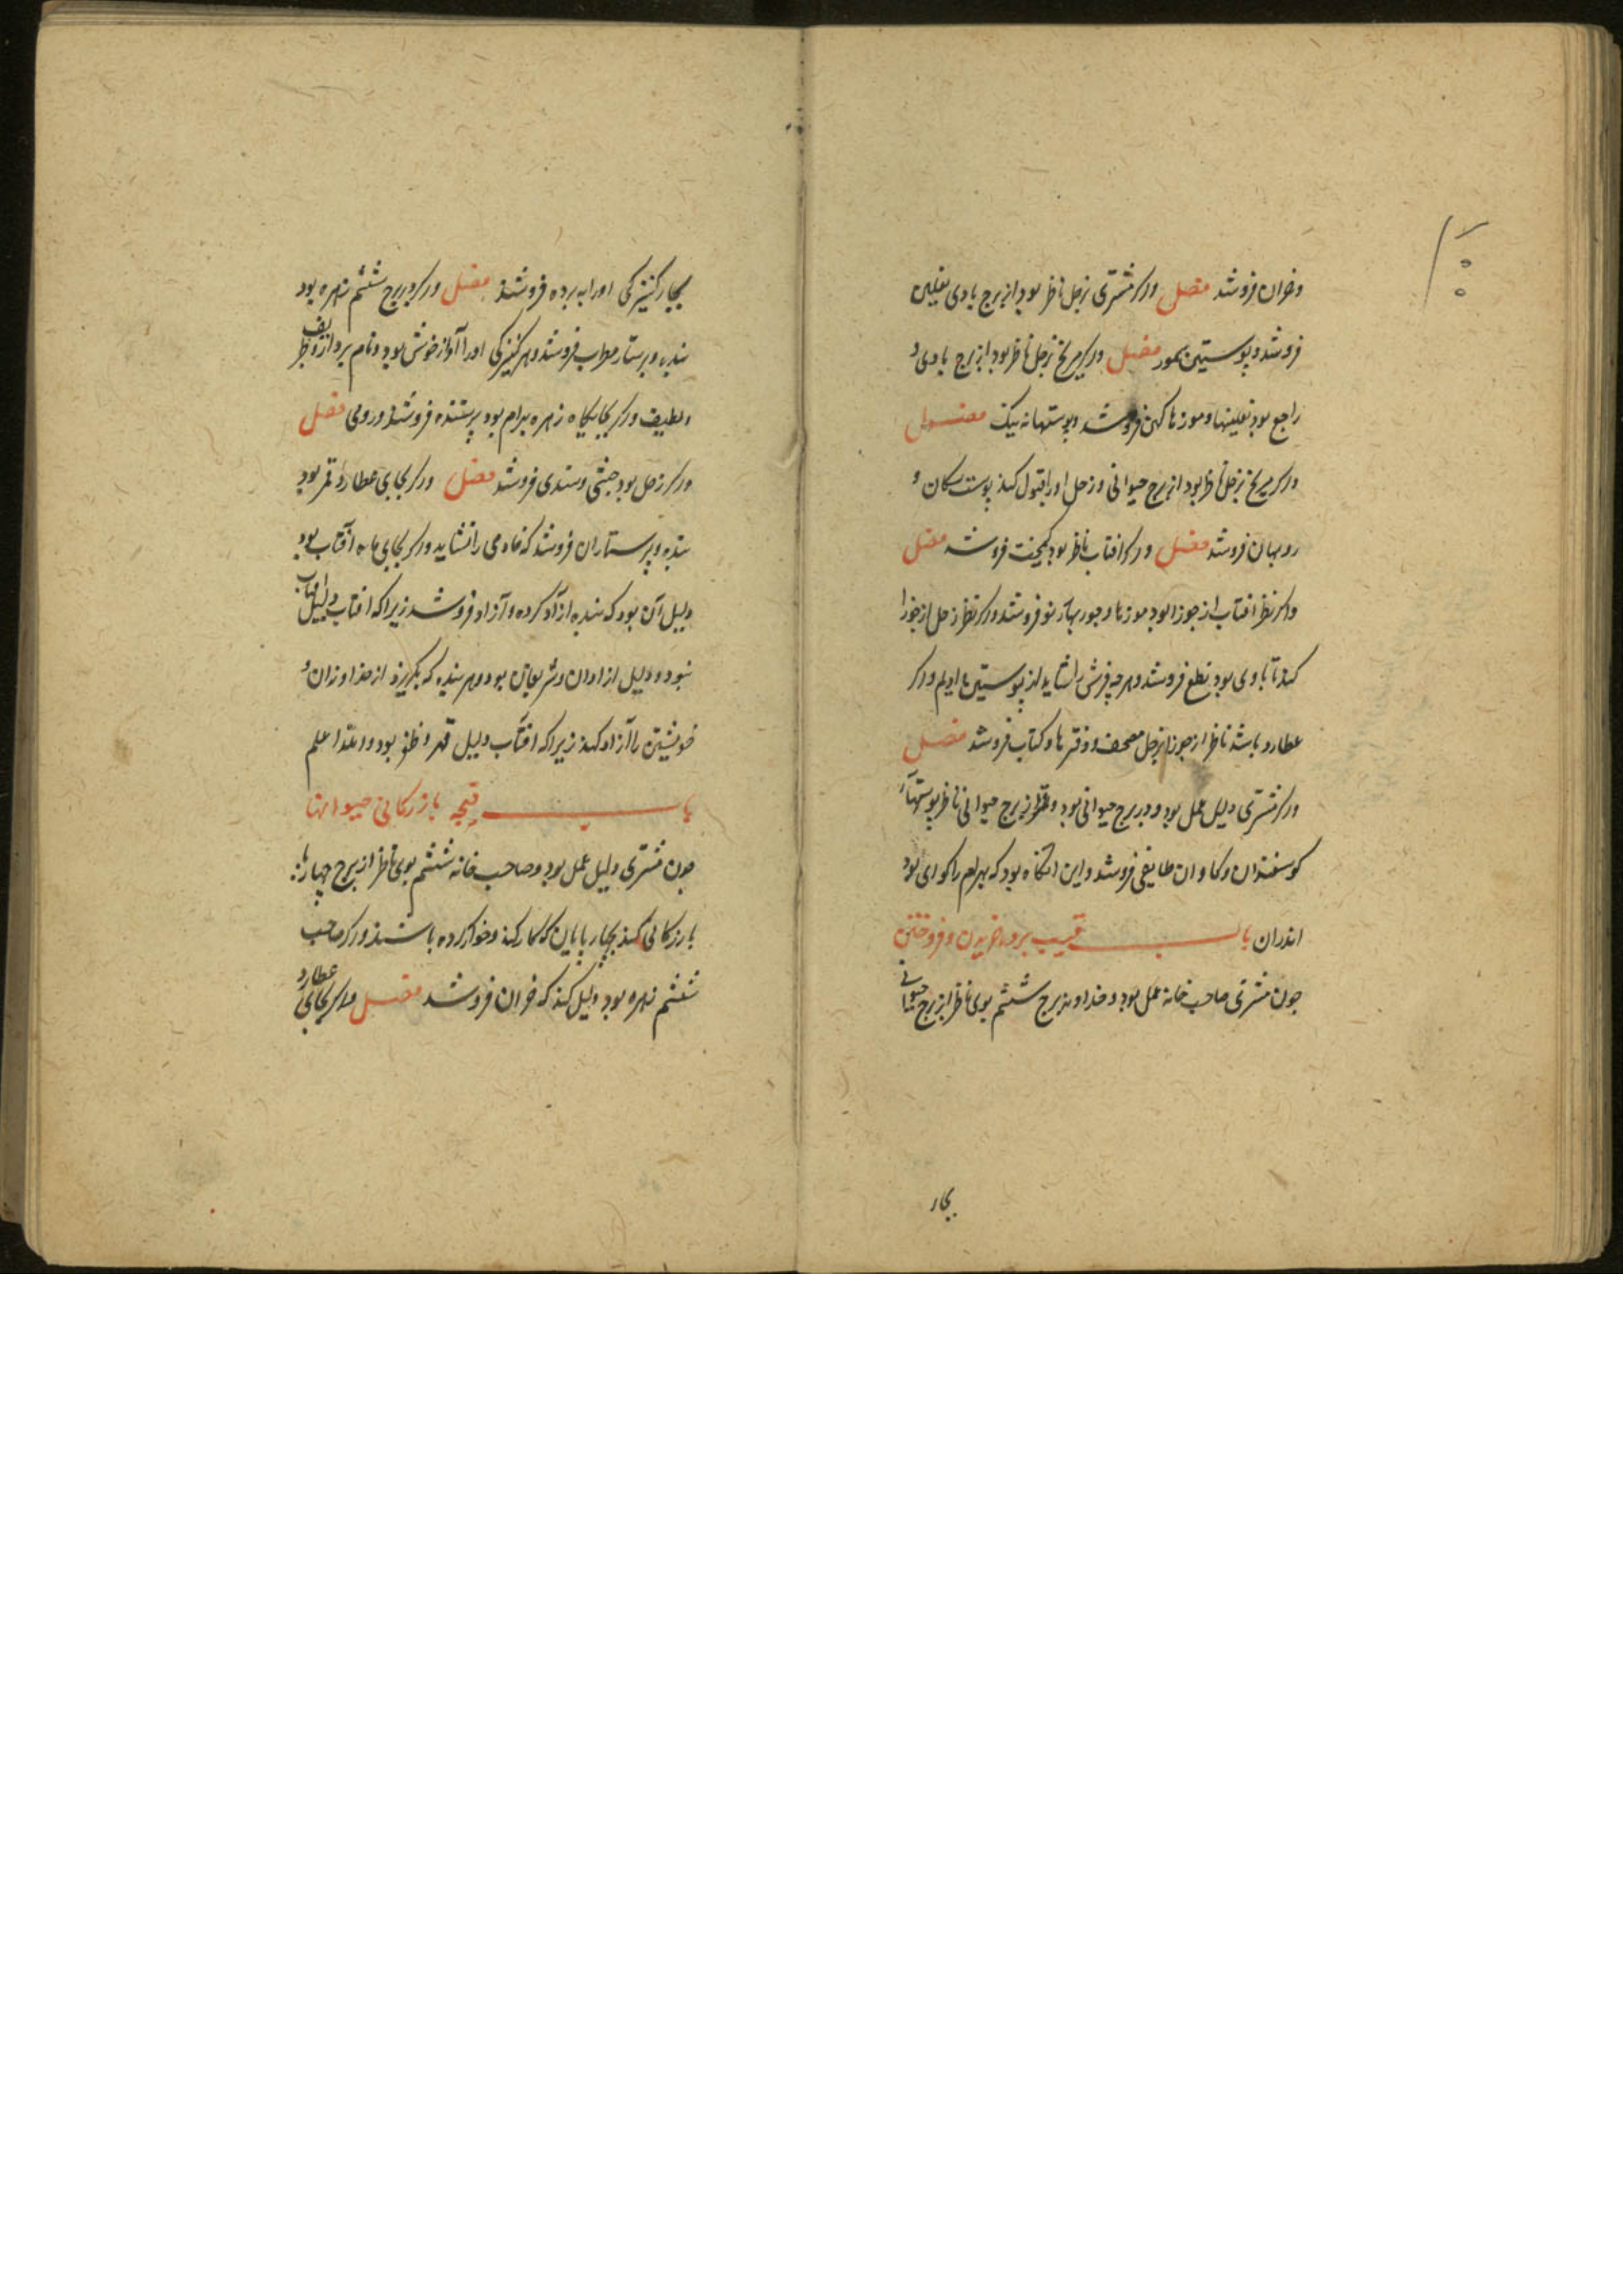 وخزان فروشد فصل واگر مشتری بزحل ناظر بود از برج بادی نعلین
فروشد و پوستین سمور فصل واگر مریخ بزحل ناظر بود از برج بادی و
راجع بود نعلینها و موزها کهن فروشد و پوستها نه نیک فصل
واگر مریخ بزحل ناظر بود از برج حیوانی و زحل او را قبول کند پوست سکان و
روبهان فروشد فصل واگر افتاب ناظر بود کیمخت فروشد فصل
واگر نظر افتاب از جوزا بود موزها و جوربهاء نو فروشد واگر نظر زحل از جوزا
کند تا باوی بود نطع فروشد و هرچه فرش را شاید از پوستین یا ادیم واگر
عطارد باشد ناظر از جوزا بزحل مصحف و دفترها و کتاب فروشد فصل
واگر مشتری دلیل عمل بود و در برج حیوانی بود و قمر از برج حیوانی ناظر پوستهاء
کوسفندان و کاوان طایفی فروشد و این انکاه بود که بهرام را کوای بود
اندران باب قیب برده خریدن و فروختن
چون مشتری صاحب خانه عمل بود و خداوند برج ششم بوی ناظر از برج حیوانی
بجار
بجار کنیزکی اورا به برده فروشند فصل واگر در برج ششم زهره بود
بنده و پرستار مطرب فروشد و هر کنیزکی اورا آواز خوش بود و نام بردار و ظریف
و لطیف واگر بجایکاه زهره بهرام بود پرستنده فروشد و رومی فصل
واگر زحل بود حبشی و سندی فروشد فصل واگر بجای عطارد قمر بود
بنده و پرستاران فروشد که خادمی را نشاید واگر بجای ماه آفتاب بود
دلیل آن بود که بنده ازاد کرده و آزاد فروشد زیرا که افتاب دلیل افتاب
نبود و دلیل ازادان و شریفان بود و هر بنده که بگریزد از خداوندان و
خویشتن را آزاد کند زیرا که افتاب دلیل قهر و ظفر بود والله اعلم
باب قیجه بازرکانی حیوانها
چون مشتری دلیل عمل بود و صاحب خانه ششم بوی ناظر از برج چهارپا
بازرکانی کند بچهارپایان که کار کند و خو کرده باشند واگر صاحب
ششم زهره بود دلیل کند که خران فروشد فصل واگر بجای عطارد